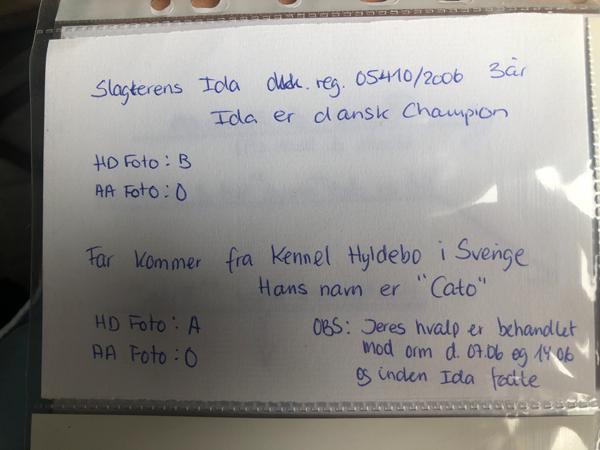 Slagterens Ida dkk. reg. 05410/2006 3år
Ida er dansk Champion
HD Foto: B
AA Foto: 0
Far kommer fra Kennel Hyldebo i Sverige
Hans navn er "Cato"
HD Foto: A
AA Foto: 0
OBS: Jeres hvalp er behandlet
mod orm d. 07.06 og 14.06
og inden Ida fødte